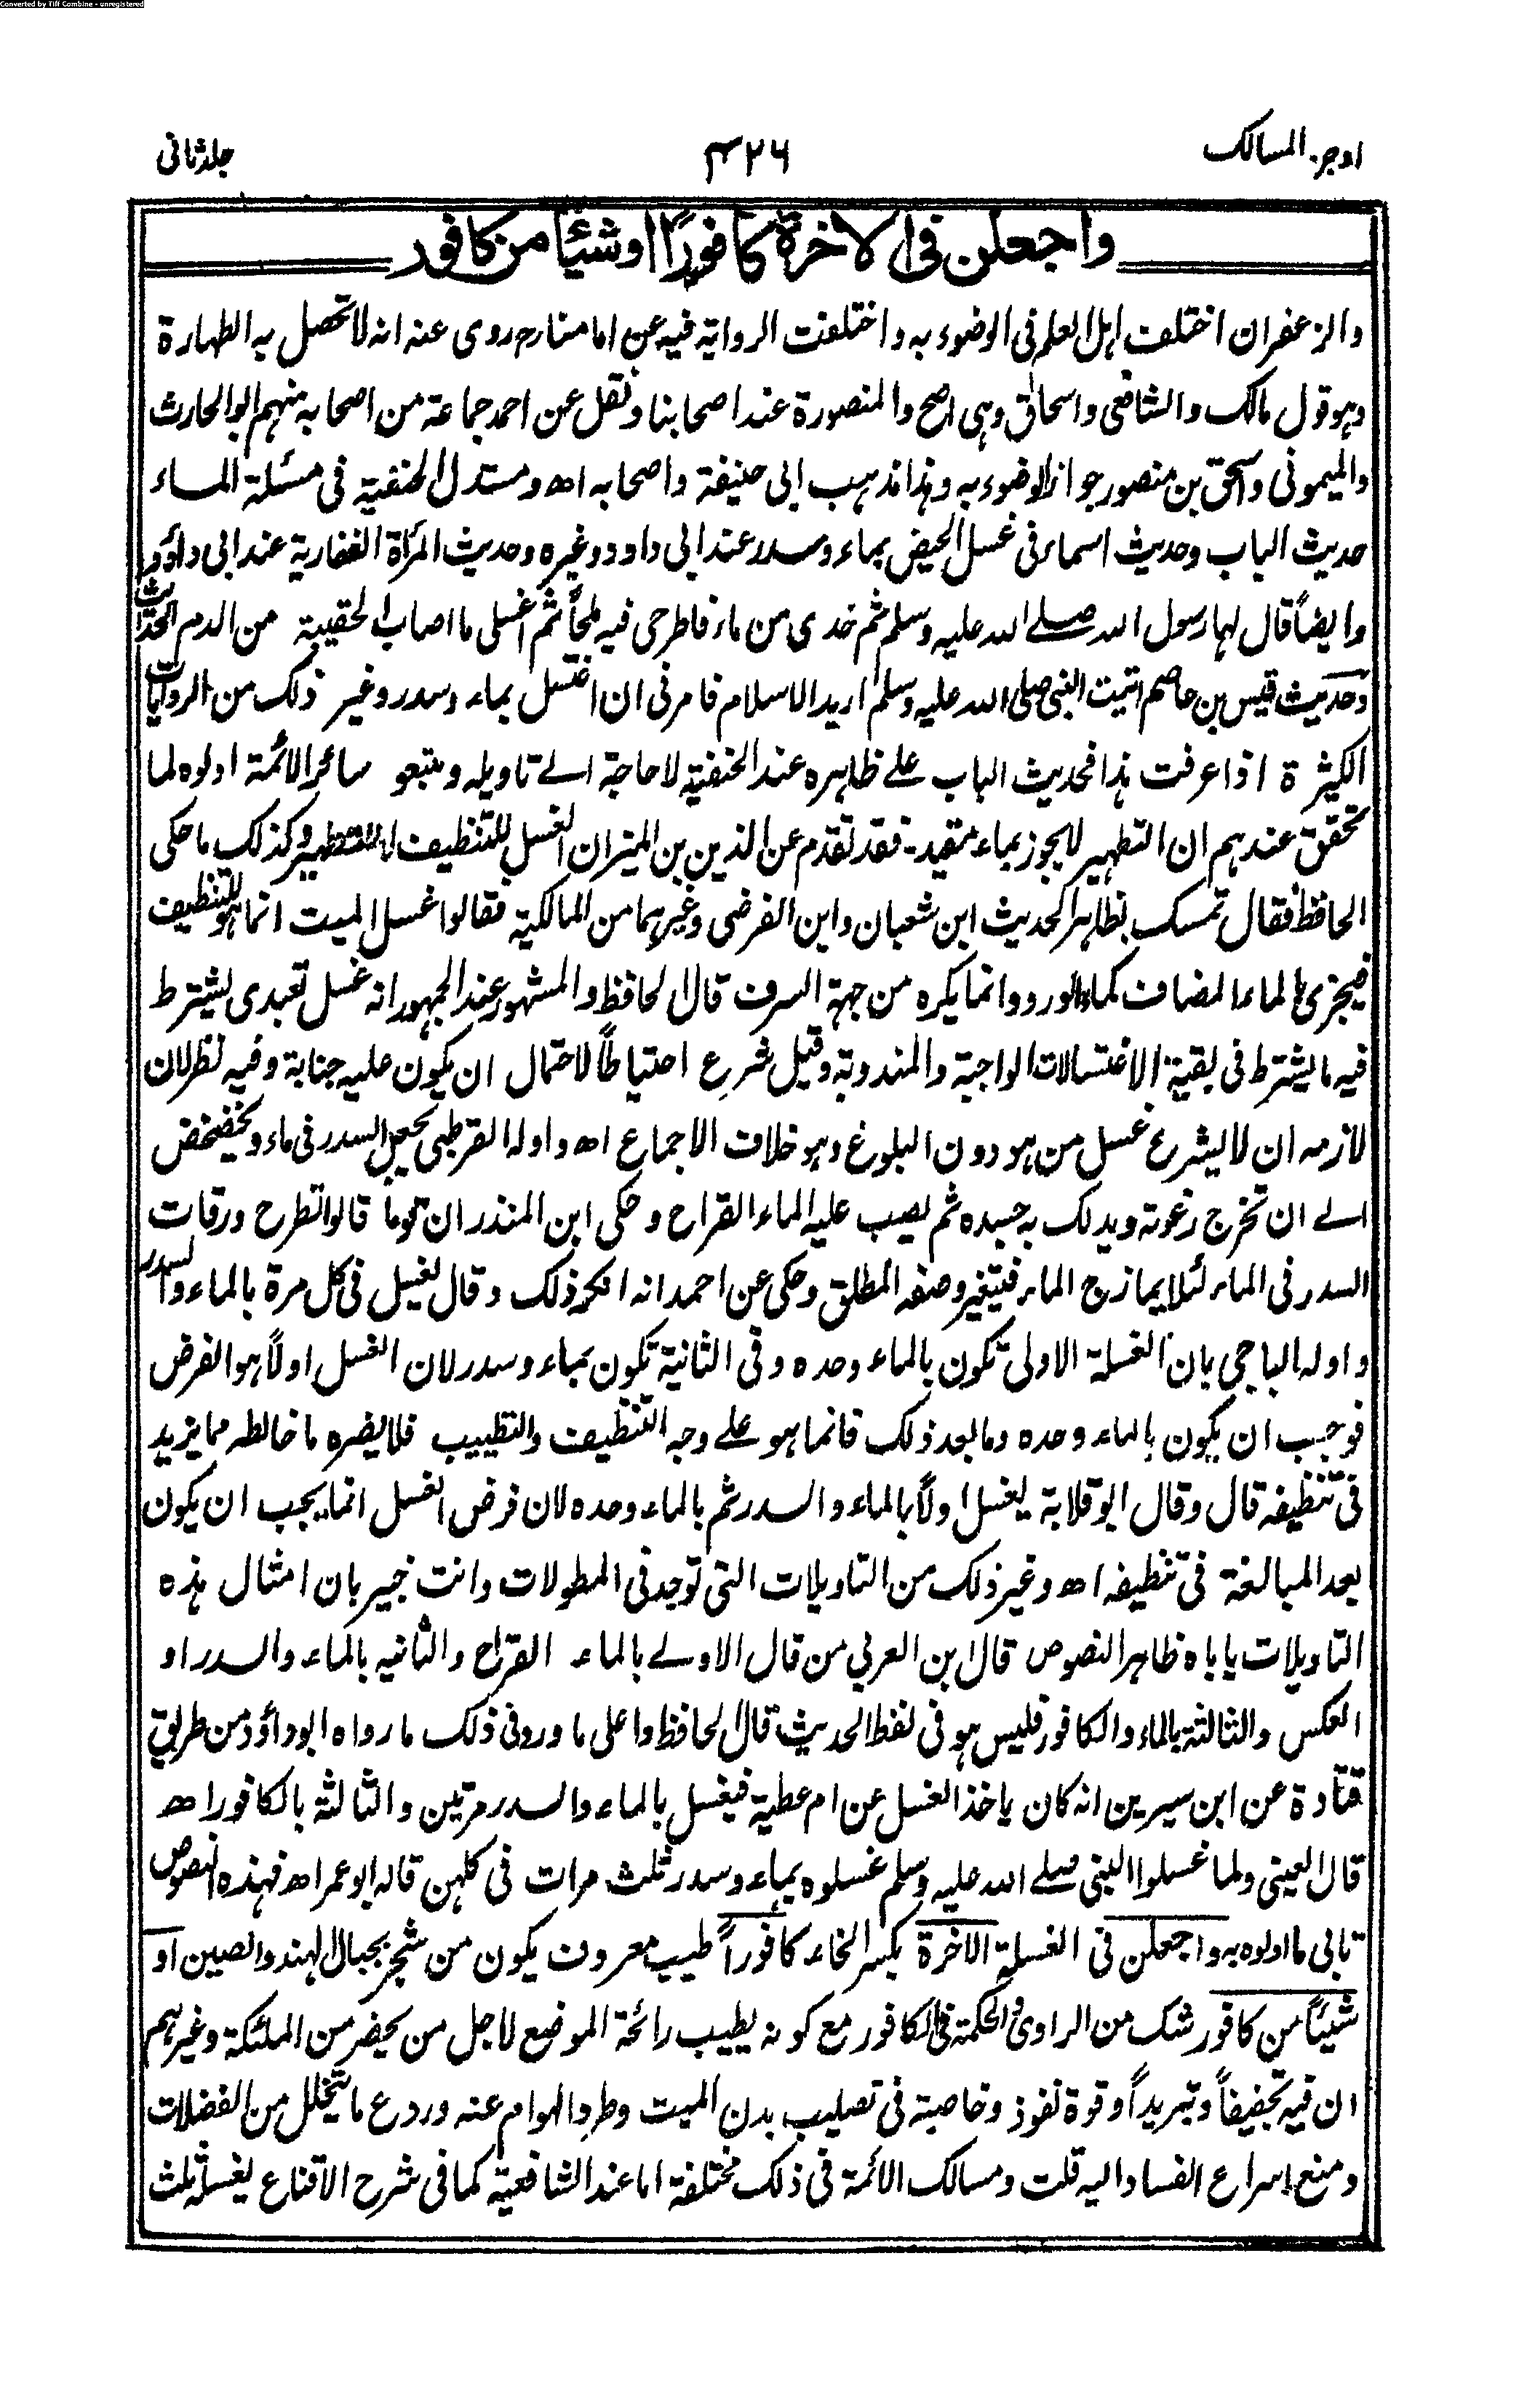 Converted by Tiff Combine - unregistered
اوجز المسالك
٤٢٦
جلد ثانى
واجعلن فى الاخرة كافورًا او شيئًا من كافور
والزعفران اختلف اهل العلم فى الوضوء به واختلفت الرواية فيه عن امامنا رم روى عنه انه لا تحصل به الطهارة
وهو قول مالك والشافعى واسحاق وهى اصح والمنصورة عند اصحابنا ونقل عن احمد جماعة من اصحابه منهم ابو الحارث
والميمونى واسحق بن منصور جواز الوضوء به وهذا مذهب ابى حنيفة واصحابه اه ومستدل الحنفية فى مسئلة الماء
حديث الباب وحديث اسماء فى غسل الحيض بماء وسدر عند ابى داود وغيره وحديث المرأة الغفارية عند ابى داؤد
وايضًا قال لها رسول الله صلے الله عليه وسلم ثم خذى من ماء فاطرحى فيه ملحًا ثم اغسلى ما اصاب الحقيبة من الدم الحديث
وحديث قيس بن عاصم اتيت النبى صلى الله عليه وسلم اريد الاسلام فامرنى ان اغتسل بماء وسدر وغير ذلك من الروايات
الكثيرة اذا عرفت هذا فحديث الباب علے ظاهره عند الحنفية لا حاجة الے تاويله ومتبعو سائر الائمة اولوه لما
تحقق عندهم ان التطهير لا يجوز بماء مقيد - فقد تقدم عن الذين بن المنير ان الغسل للتنظيف لا للتطهير وكذلك ما حكى
الحافظ فقال تمسك بظاهر الحديث ابن شعبان وابن الفرضى وغيرهما من المالكية فقالوا غسل الميت انما هو للتنظيف
فيجزئ بالماء المضاف كماء الورد وانما يكره من جهة السرف قال الحافظ والمشهور عند الجمهور انه غسل تعبدى يشترط
فيه ما يشترط فى بقية الاغتسالات الواجبة والمندوبة وقيل شرع احتياطًا لاحتمال ان يكون عليه جنابة وفيه نظر لان
لازمه ان لا يشرع غسل من هو دون البلوغ وهو خلاف الاجماع اه واوله القرطبى يجعل السدر فى ماء ويخضخض
الے ان تخرج رغوته ويدلك به جسده ثم يصب عليه الماء القراح وحكى ابن المنذر ان قومًا قالوا تطرح ورقات
السدر فى الماء لئلا يمازج الماء فيتغير وصفه المطلق وحكى عن احمد انه انكر ذلك وقال يغسل فى كل مرة بالماء والسدر
واوله الباجى بان الغسلة الاولى تكون بالماء وحده وفى الثانية تكون بماء وسدر لان الغسل اولًا هو الفرض
فوجب ان يكون بالماء وحده وما بعد ذلك فانما هو علے وجه التنظيف والتطييب فلا يضره ما خالطه مما يزيد
فى تنظيفه قال وقال ابو قلابة يغسل اولًا بالماء والسدر ثم بالماء وحده لان فرض الغسل انما يجب ان يكون
بعد المبالغة فى تنظيفه اه وغير ذلك من التاويلات التى توجد فى المطولات وانت خبير بان امثال هذه
التاويلات يا باه ظاهر النصوص قال ابن العربى من قال الاولے بالماء القراح والثانيه بالماء والسدر او
العكس والثالثة بالماء والكافور فليس هو فى لفظ الحديث قال الحافظ واعلى ما ورد فى ذلك ما رواه ابو داؤد من طريق
قتادة عن ابن سيرين انه كان ياخذ الغسل عن ام عطية فيغسل بالماء والسدر مرتين والثالثة بالكافور اه
قال العينى ولما غسلوا النبى صلے الله عليه وسلم غسلوه بماء وسدر ثلث مرات فى كلهن قاله ابو عمر اه فهذه النصوص
تابى ما اولوه به واجعلن فى الغسلة الاخرة بكسر الخاء كافورًا طيب معروف يكون من شجر بجبال الهند والصين او
شيئًا من كافور شك من الراوى والحكمة فى الكافور مع كونه يطيب رائحة الموضع لاجل من يحضر من الملئكة وغيرهم
ان فيه تجفيفًا وتبريدًا وقوة نفوذ وخاصية فى تصليب بدن الميت وطرد الهوام عنه وردع ما يتخلل من الفضلات
ومنع اسراع الفساد اليه قلت ومسالك الائمة فى ذلك مختلفة اما عند الشافعية كما فى شرح الاقناع يغسله ثلث